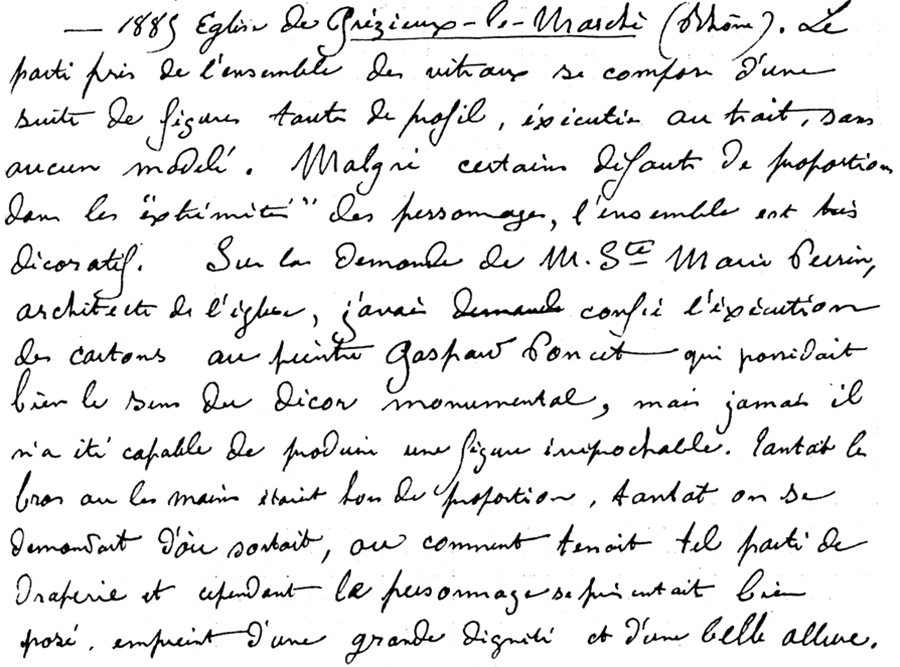 — 1885 Eglise de Grézieux-le-Marché (Rhône). Le
parti pris de l'ensemble des vitraux se compose d'une
suite de figures toutes de profil, éxécutées au trait, sans
aucun modelé. Malgré certains défauts de proportion
dans les "extrémités" des personnages, l'ensemble est très
décoratif. Sur la demande de M. Ste Marie Perrin,
architecte de l'église, j'avais demandé confié l'éxécution
des cartons au peintre Gaspard Poncet qui possédait
bien le sens du décor monumental, mais jamais il
n'a été capable de produire une figure irréprochable. Tantôt les
bras ou les mains étaient hors de proportion, tantot on se
demandait d'où sortait, ou comment tenait tel parti de
draperie et cependant le personnage se présentait bien
posé, empreint d'une grande dignité et d'une belle allure.